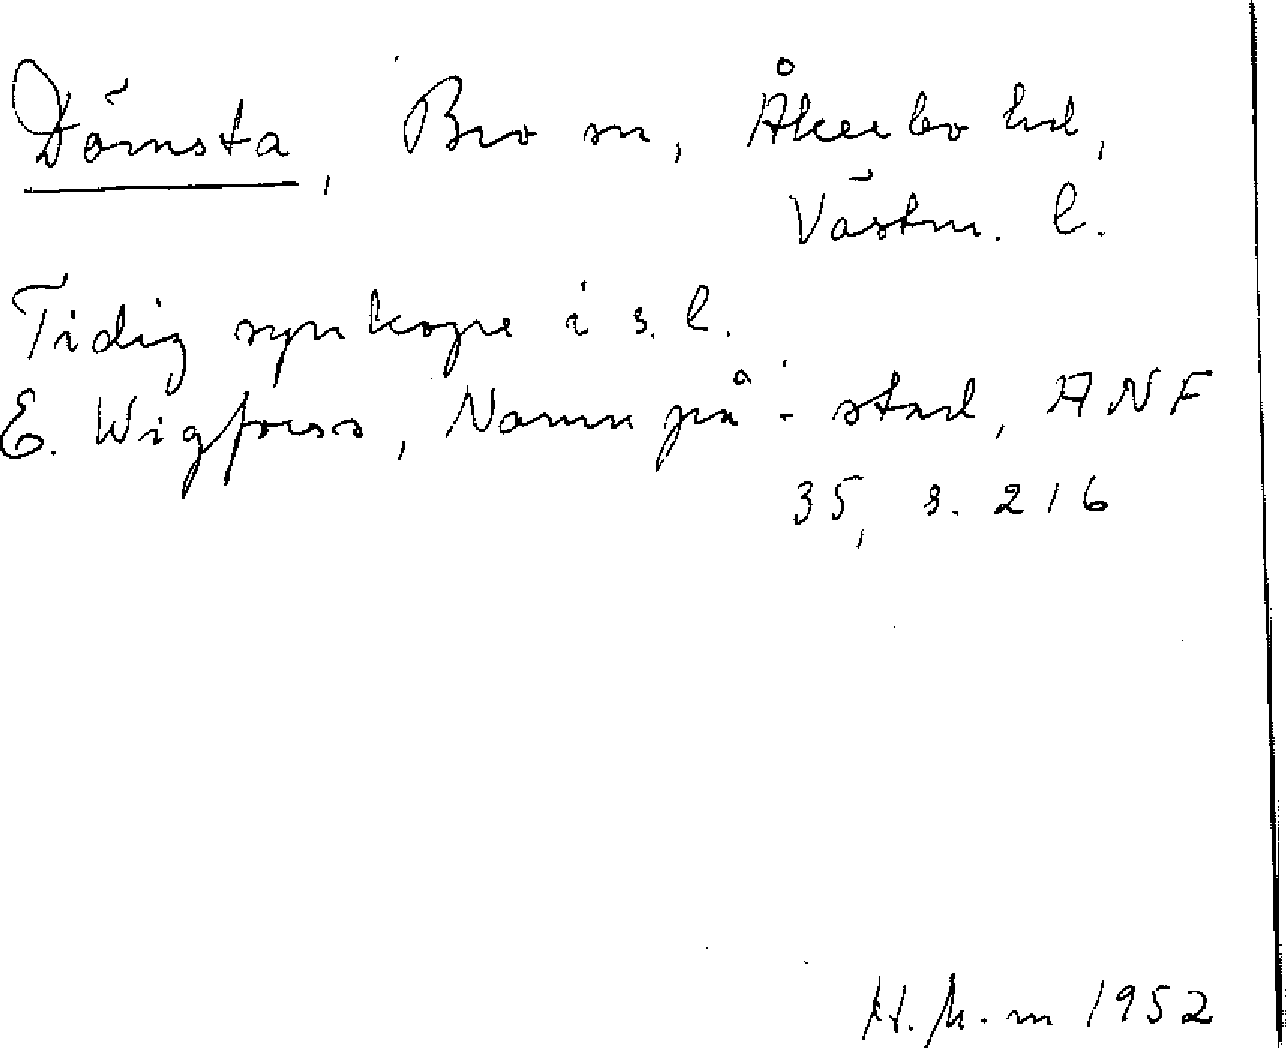 Dömsta, Bro sn, Åkerbo hd,
Västm. l.
Tidig synkope i s. l.
E. Wigforss, Namn på -stad, ANF
35, s. 216
1952